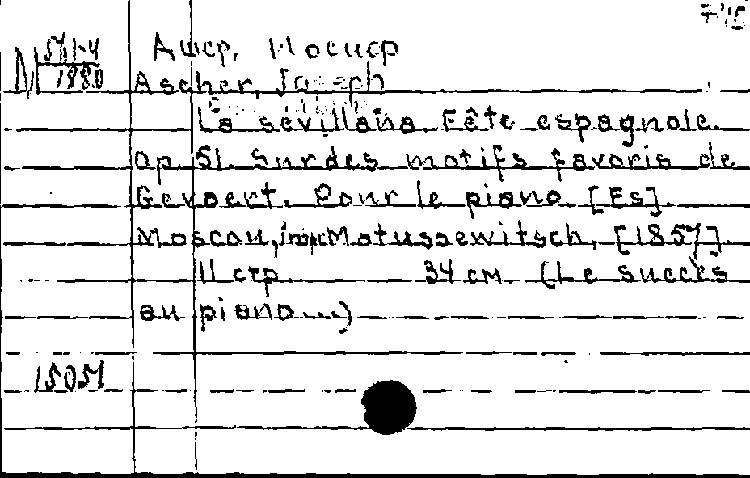 Ашер, Иосиф
Ascher, Joseph
La sevillana Fête espagnole.
op. 51. Sur des motifs favoris de
Gevaert. Pour le piano [Es]
Moscou, Matussewitsch, [1857]
11 стр. 34 см. (Le succès
au piano...)